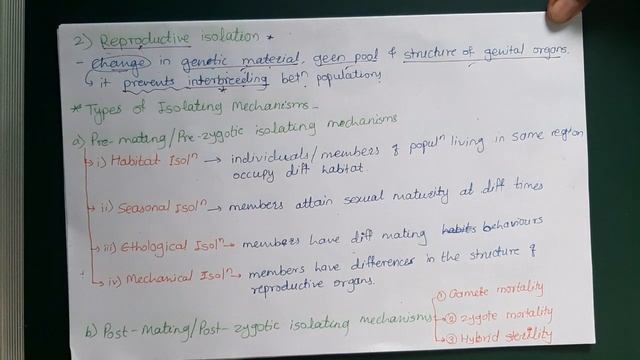 2) Reproductive isolation *
- change in genetic material, geen pool & structure of genital organs.
↳ it prevents interbreeding betⁿ populations
* Types of Isolating Mechanisms -
a) Pre-mating/Pre-zygotic isolating mechanisms
i) Habitat Isolⁿ → individuals/members of populⁿ living in same region
occupy diff habitat.
ii) Seasonal Isolⁿ → members attain sexual maturity at diff times
iii) Ethological Isolⁿ → members have diff mating habits behaviours
iv) Mechanical Isolⁿ → members have differences in the structure of
reproductive organs.
b) Post-Mating/Post-zygotic isolating mechanisms
① Gamete mortality
② Zygote mortality
③ Hybrid sterility